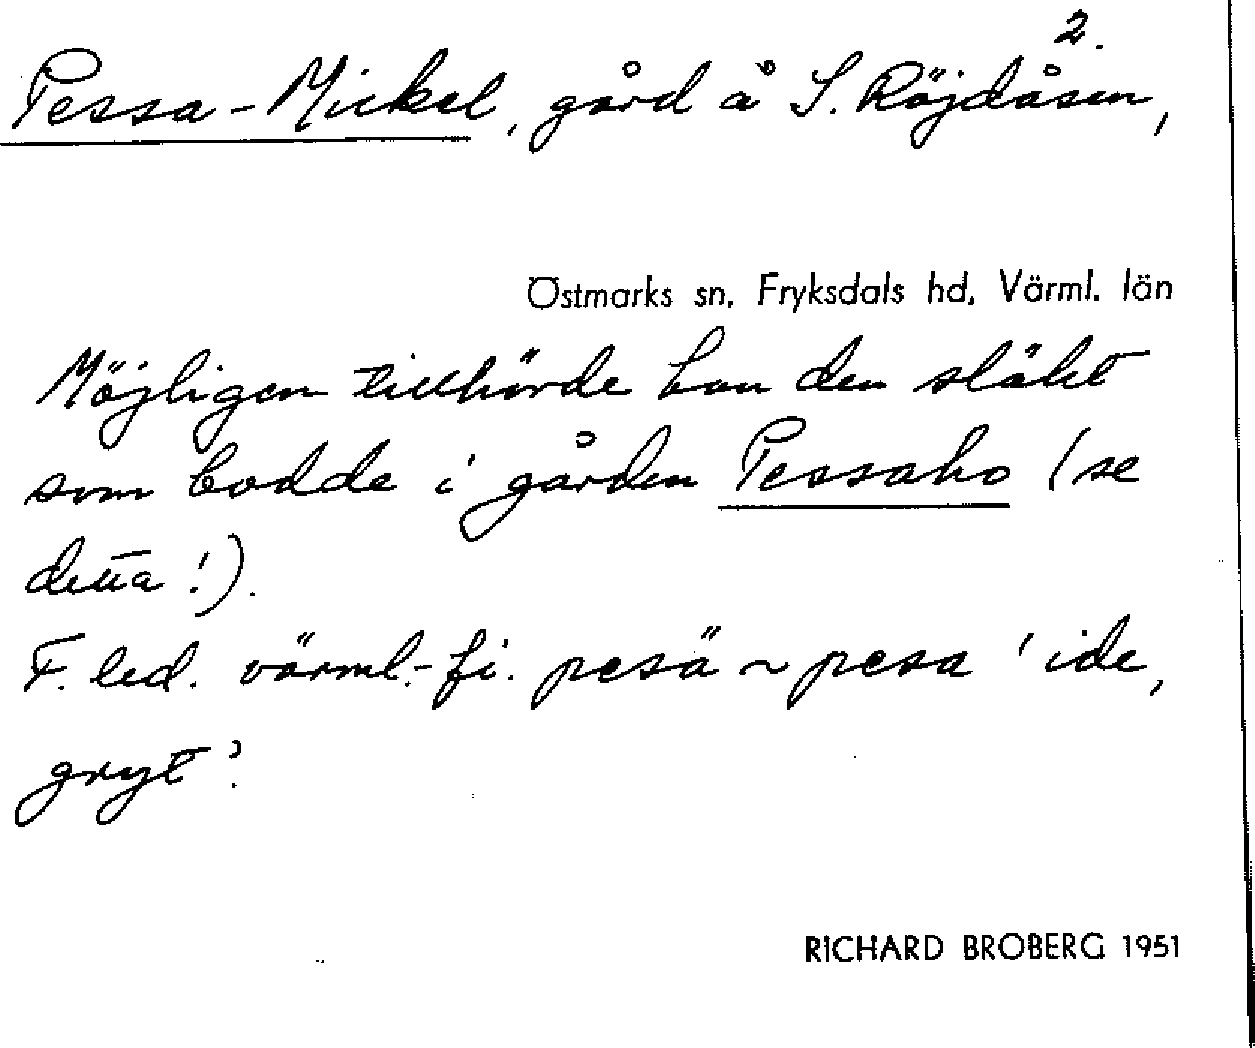 2.
Pessa-Mickel, gård å S. Röjdåsen,
Östmarks sn, Fryksdals hd, Värml. län
Möjligen tillhörde han den släkt
som bodde i gården Pessaho (se
detta!).
F. led. värml.-fi. pesä ~ pesa 'ide,
gryt'.
RICHARD BROBERG 1951